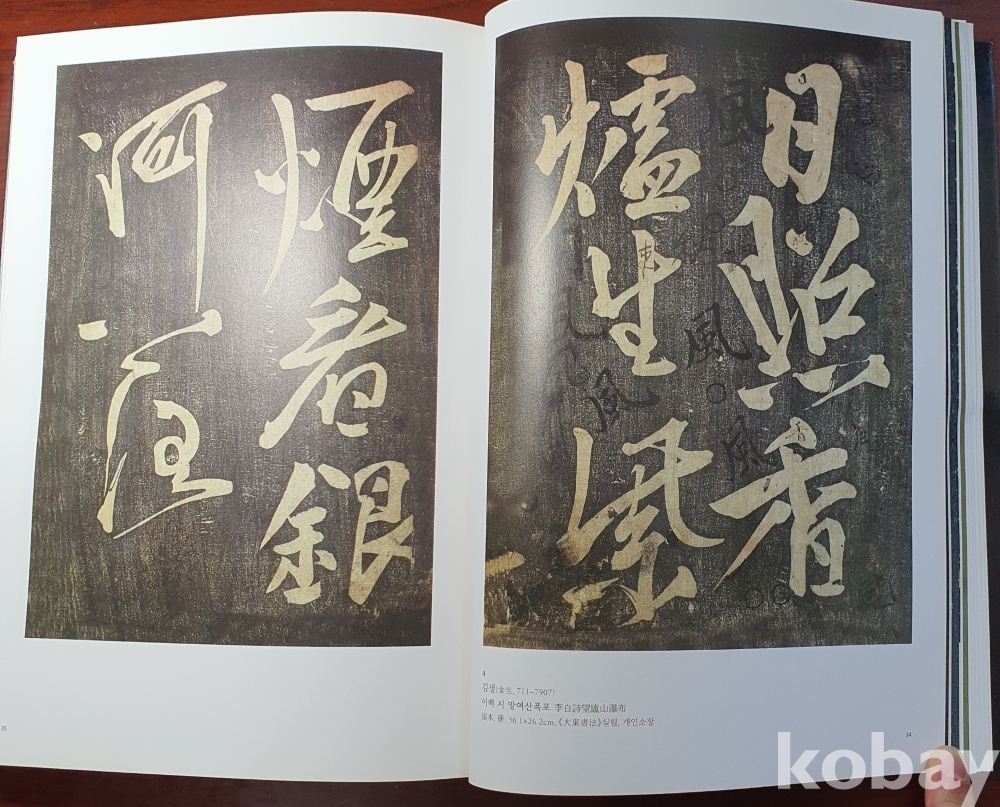 日照香
爐生紫
煙看銀
河
風
風
風
風
4
김생(金生, 711-790?)
이백 시 망여산폭포 李白詩望廬山瀑布
拓本, 冊, 36.1×26.2cm, 《大東書法》실림, 개인소장
34
35
kobay